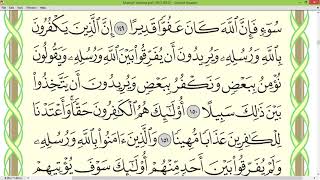 سُوٓءٍ فَإِنَّ ٱللَّهَ كَانَ عَفُوًّا قَدِيرًا ١٤٩ إِنَّ ٱلَّذِينَ يَكْفُرُونَ
بِٱللَّهِ وَرُسُلِهِۦ وَيُرِيدُونَ أَن يُفَرِّقُوا۟ بَيْنَ ٱللَّهِ وَرُسُلِهِۦ وَيَقُولُونَ
نُؤْمِنُ بِبَعْضٍ وَنَكْفُرُ بِبَعْضٍ وَيُرِيدُونَ أَن يَتَّخِذُوا۟
بَيْنَ ذَٰلِكَ سَبِيلًا ١٥٠ أُو۟لَـٰٓئِكَ هُمُ ٱلْكَـٰفِرُونَ حَقًّا وَأَعْتَدْنَا
لِلْكَـٰفِرِينَ عَذَابًا مُّهِينًا ١٥١ وَٱلَّذِينَ ءَامَنُوا۟ بِٱللَّهِ وَرُسُلِهِۦ
وَلَمْ يُفَرِّقُوا۟ بَيْنَ أَحَدٍ مِّنْهُمْ أُو۟لَـٰٓئِكَ سَوْفَ يُؤْتِيهِمْ